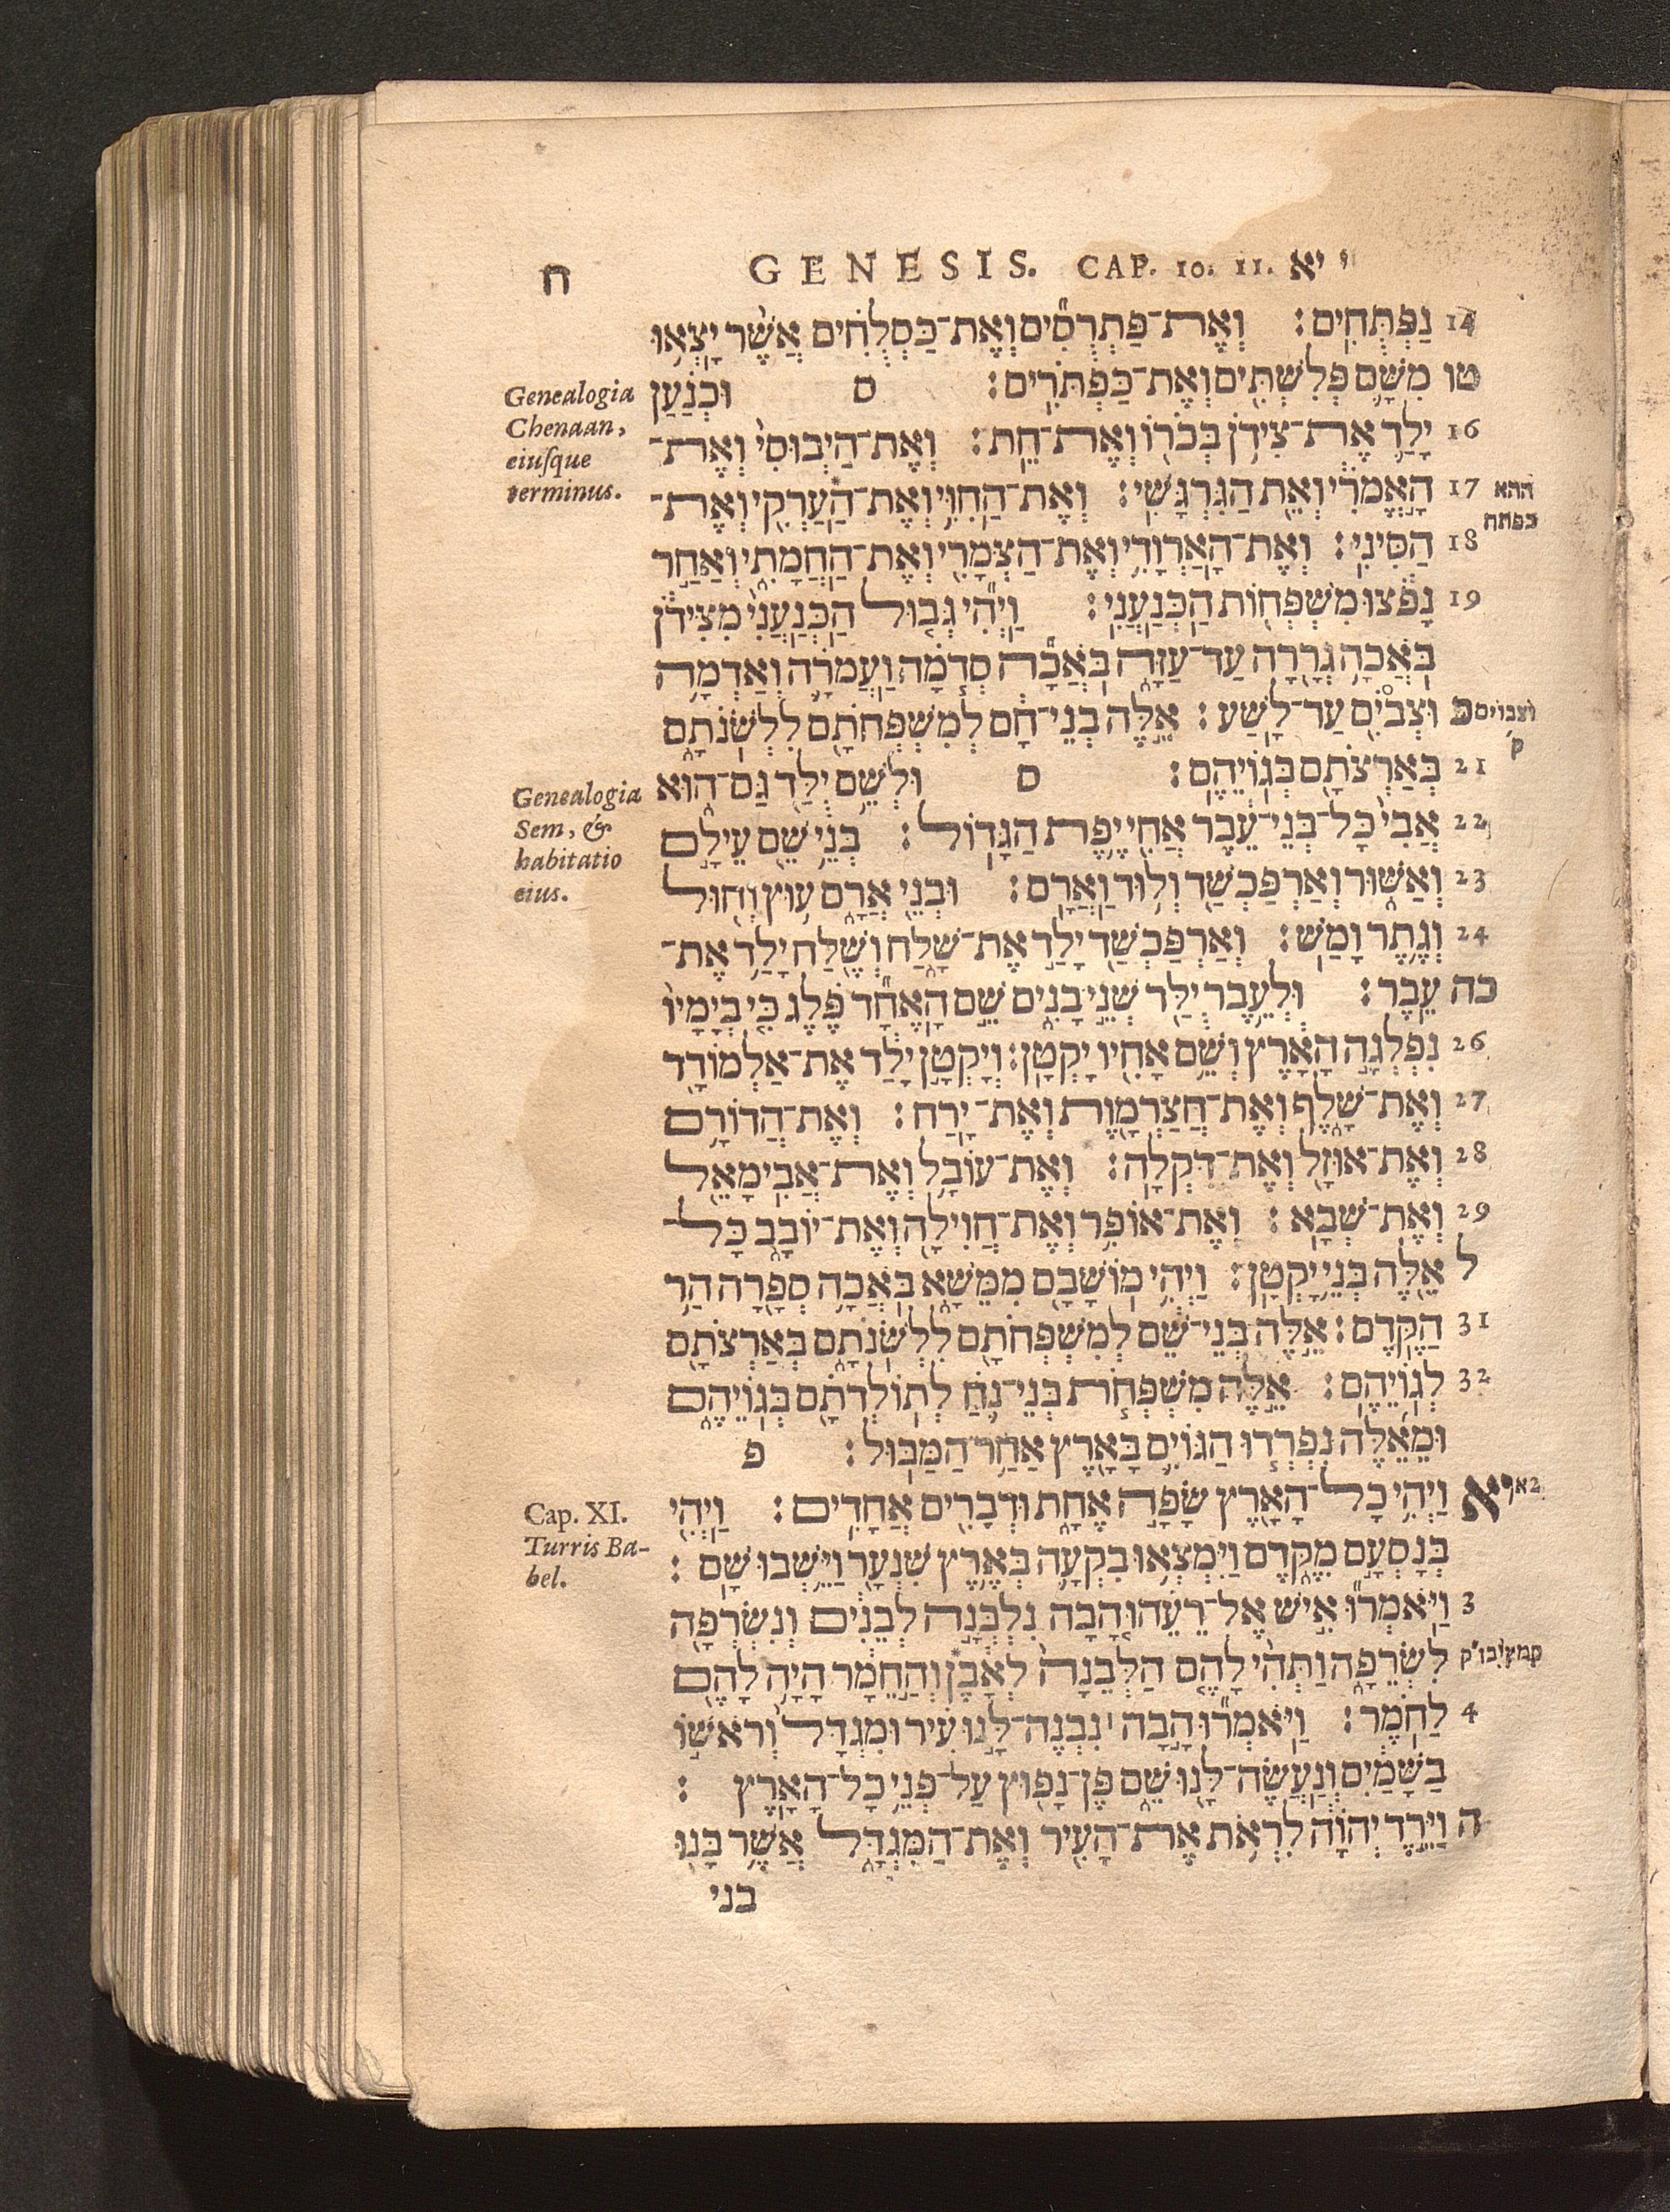 ח GENESIS. CAP. 10. 11. י יא
14 נַפְתֻּחִים׃ וְאֶת־פַּתְרֻסִים וְאֶת־כַּסְלֻחִים אֲשֶׁר יָצְאוּ
טו מִשָּׁם פְּלִשְׁתִּים וְאֶת־כַּפְתֹּרִים׃ ס וּכְנַעַן
16 יָלַד אֶת־צִידֹן בְּכֹרוֹ וְאֶת־חֵת׃ וְאֶת־הַיְבוּסִי וְאֶת־
17 הָאֱמֹרִי וְאֵת הַגִּרְגָּשִׁי׃ וְאֶת־הַחִוִּי וְאֶת־הַעַרְקִי וְאֶת־
18 הַסִּינִי׃ וְאֶת־הָאַרְוָדִי וְאֶת־הַצְּמָרִי וְאֶת־הַחֲמָתִי וְאַחַר
19 נָפֹצוּ מִשְׁפְּחוֹת הַכְּנַעֲנִי׃ וַיְהִי גְּבוּל הַכְּנַעֲנִי מִצִּידֹן
בֹּאֲכָה גְרָרָה עַד־עַזָּה בֹּאֲכָה סְדֹמָה וַעֲמֹרָה וְאַדְמָה
כ וּצְבֹיִם עַד־לָשַׁע׃ אֵלֶּה בְנֵי־חָם לְמִשְׁפְּחֹתָם לִלְשֹׁנֹתָם
21 בְּאַרְצֹתָם בְּגוֹיֵהֶם׃ ס וּלְשֵׁם יֻלַּד גַּם־הוּא
22 אֲבִי כָּל־בְּנֵי־עֵבֶר אֲחִי יֶפֶת הַגָּדוֹל׃ בְּנֵי שֵׁם עֵילָם
23 וְאַשּׁוּר וְאַרְפַּכְשַׁד וְלוּד וַאֲרָם׃ וּבְנֵי אֲרָם עוּץ וְחוּל
24 וְגֶתֶר וָמַשׁ׃ וְאַרְפַּכְשַׁד יָלַד אֶת־שָׁלַח וְשֶׁלַח יָלַד אֶת־
כה עֵבֶר׃ וּלְעֵבֶר יֻלַּד שְׁנֵי בָנִים שֵׁם הָאֶחָד פֶּלֶג כִּי בְיָמָיו
26 נִפְלְגָה הָאָרֶץ וְשֵׁם אָחִיו יָקְטָן׃ וְיָקְטָן יָלַד אֶת־אַלְמוֹדָד
27 וְאֶת־שָׁלֶף וְאֶת־חֲצַרְמָוֶת וְאֶת־יָרַח׃ וְאֶת־הֲדוֹרָם
28 וְאֶת־אוּזָל וְאֶת־דִּקְלָה׃ וְאֶת־עוֹבָל וְאֶת־אֲבִימָאֵל
29 וְאֶת־שְׁבָא׃ וְאֶת־אוֹפִר וְאֶת־חֲוִילָה וְאֶת־יוֹבָב כָּל־
ל אֵלֶּה בְּנֵי יָקְטָן׃ וַיְהִי מוֹשָׁבָם מִמֵּשָׁא בֹּאֲכָה סְפָרָה הַר
31 הַקֶּדֶם׃ אֵלֶּה בְנֵי־שֵׁם לְמִשְׁפְּחֹתָם לִלְשֹׁנֹתָם בְּאַרְצֹתָם
32 לְגוֹיֵהֶם׃ אֵלֶּה מִשְׁפְּחֹת בְּנֵי־נֹחַ לְתוֹלְדֹתָם בְּגוֹיֵהֶם
וּמֵאֵלֶּה נִפְרְדוּ הַגּוֹיִם בָּאָרֶץ אַחַר הַמַּבּוּל׃ פ
יא וַיְהִי כָל־הָאָרֶץ שָׂפָה אֶחָת וּדְבָרִים אֲחָדִים׃ וַיְהִי
בְּנָסְעָם מִקֶּדֶם וַיִּמְצְאוּ בִקְעָה בְּאֶרֶץ שִׁנְעָר וַיֵּשְׁבוּ שָׁם׃
3 וַיֹּאמְרוּ אִישׁ אֶל־רֵעֵהוּ הָבָה נִלְבְּנָה לְבֵנִים וְנִשְׂרְפָה
לִשְׂרֵפָה וַתְּהִי לָהֶם הַלְּבֵנָה לְאָבֶן וְהַחֵמָר הָיָה לָהֶם
4 לַחֹמֶר׃ וַיֹּאמְרוּ הָבָה נִבְנֶה־לָּנוּ עִיר וּמִגְדָּל וְרֹאשׁוֹ
בַשָּׁמַיִם וְנַעֲשֶׂה־לָּנוּ שֵׁם פֶּן־נָפוּץ עַל־פְּנֵי כָל־הָאָרֶץ׃
ה וַיֵּרֶד יְהוָה לִרְאֹת אֶת־הָעִיר וְאֶת־הַמִּגְדָּל אֲשֶׁר בָּנוּ
בני
Genealogia
Chenaan,
eiusque
terminus.
Genealogia
Sem, &
habitatio
eius.
Cap. XI.
Turris Ba-
bel.
ההא
בפתח
וצבוים
ק
קמץ בז"ק